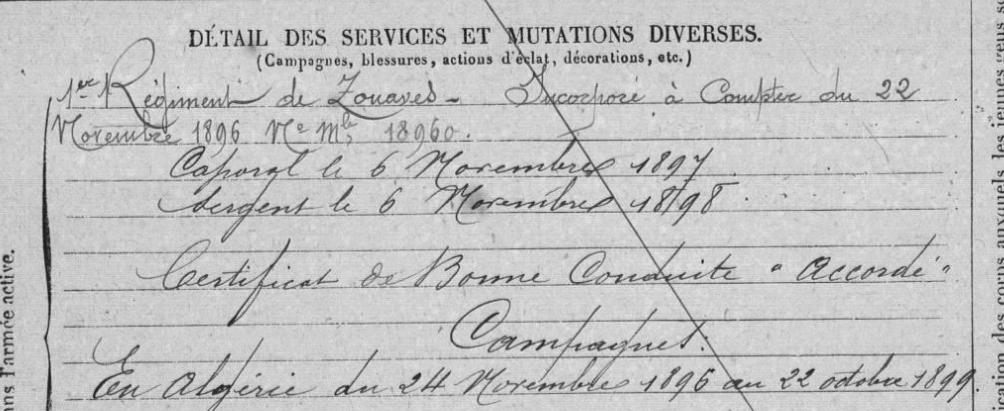 DÉTAIL DES SERVICES ET MUTATIONS DIVERSES.
(Campagnes, blessures, actions d'éclat, décorations, etc.)
1er Régiment de Zouaves - Incorporé à Compter du 22
Novembre 1896 No Mle 18960.
Caporal le 6 Novembre 1897
Sergent le 6 Novembre 1898
Certificat de Bonne Conduite "Accordé"
Campagnes.
En Algérie du 24 Novembre 1896 au 22 octobre 1899.
ans l'armée active.